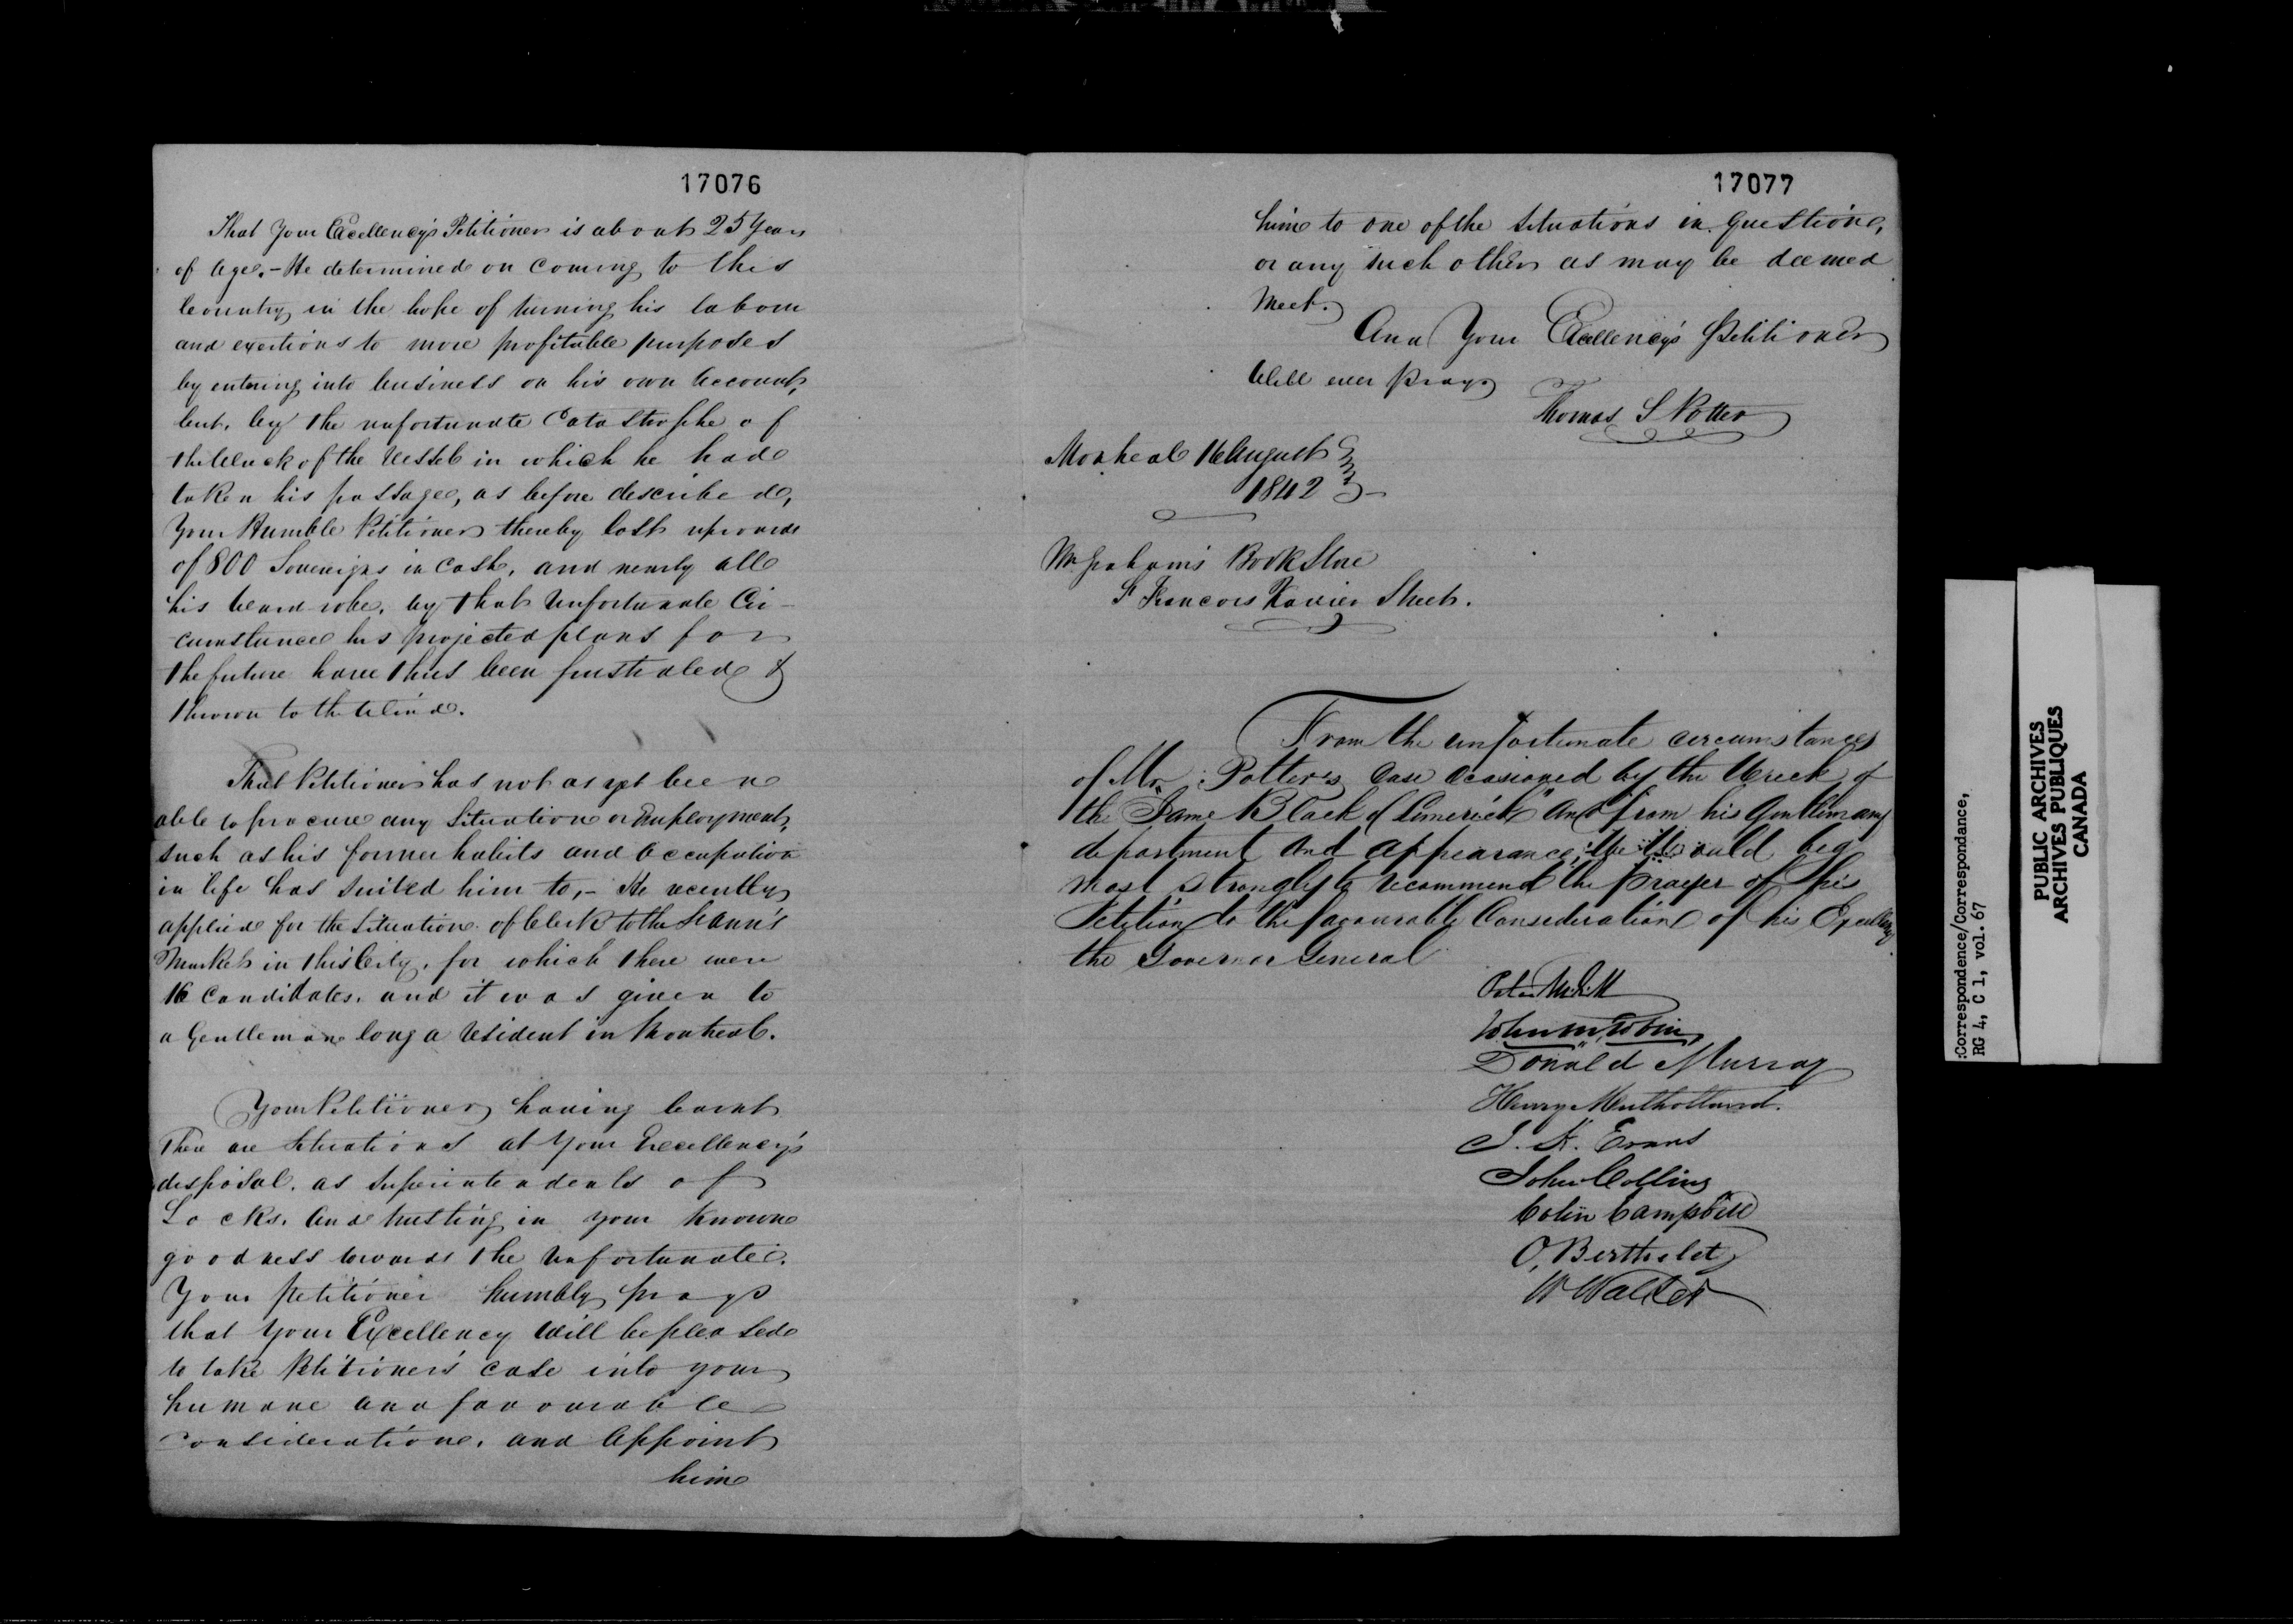 17076
That Your Excellency's Petitioner is about 25 Years
of Age. - He determined on Coming to this
Country in the hope of turning his labour
and exertions to more profitable purposes
by entering into business on his own Account,
but, by the unfortunate Catastrophe of
the Wreck of the Vessel in which he had
taken his passage, as before described,
Your Humble Petitioner thereby lost upwards
of 800 Sovereigns in Cash, and nearly all
his Weard-robe, by that Unfortunate Cir-
cumstance his projected plans for
the future have thus been frustrated &
thrown to the Wind.
That Petitioner has not as yet been
able to procure any Situation or Employment,
such as his former habits and Occupation
in life has suited him to, - He recently
applied for the Situation of Clerk to the St Ann's
Market in this City, for which there were
16 Candidates, and it was given to
a Gentleman long a Resident in Montreal.
Your Petitioner having learnt
There are Situations at Your Excellency's
disposal, as Superintendents of
Locks, And trusting in your known
goodness towards the Unfortunate.
Your Petitioner humbly prays
that Your Excellency Will be pleased
to take Petitioner's case into your
humane and favourable
consideration, and Appoint
him
17077
him to one of the Situations in Question,
or any such other as may be deemed
Meet.
And Your Excellency's Petitioner
Will ever Pray
Thomas S Potter
Montreal 16 August
1842
Mr Grahams Book Store
St Francois Xavier Street.
From the unfortunate circumstances
of Mr. Potter's Case Ocasioned by the Wreck of
the Jame Black of Limerick" And from his Gentlemany
department And appearance, We Would beg
most Strongly to recommend the Prayer of this
Petition to the favourable Consideration of his Excellency
the Governor General
Peter McGill
John M. Tobin
Donald Murray
Henry Mulholland.
J. K. Evans
John Collins
Colin Campbell
O, Berthelet
W Walker
:Correspondence/Correspondance,
RG 4, C 1, vol. 67
PUBLIC ARCHIVES
ARCHIVES PUBLIQUES
CANADA